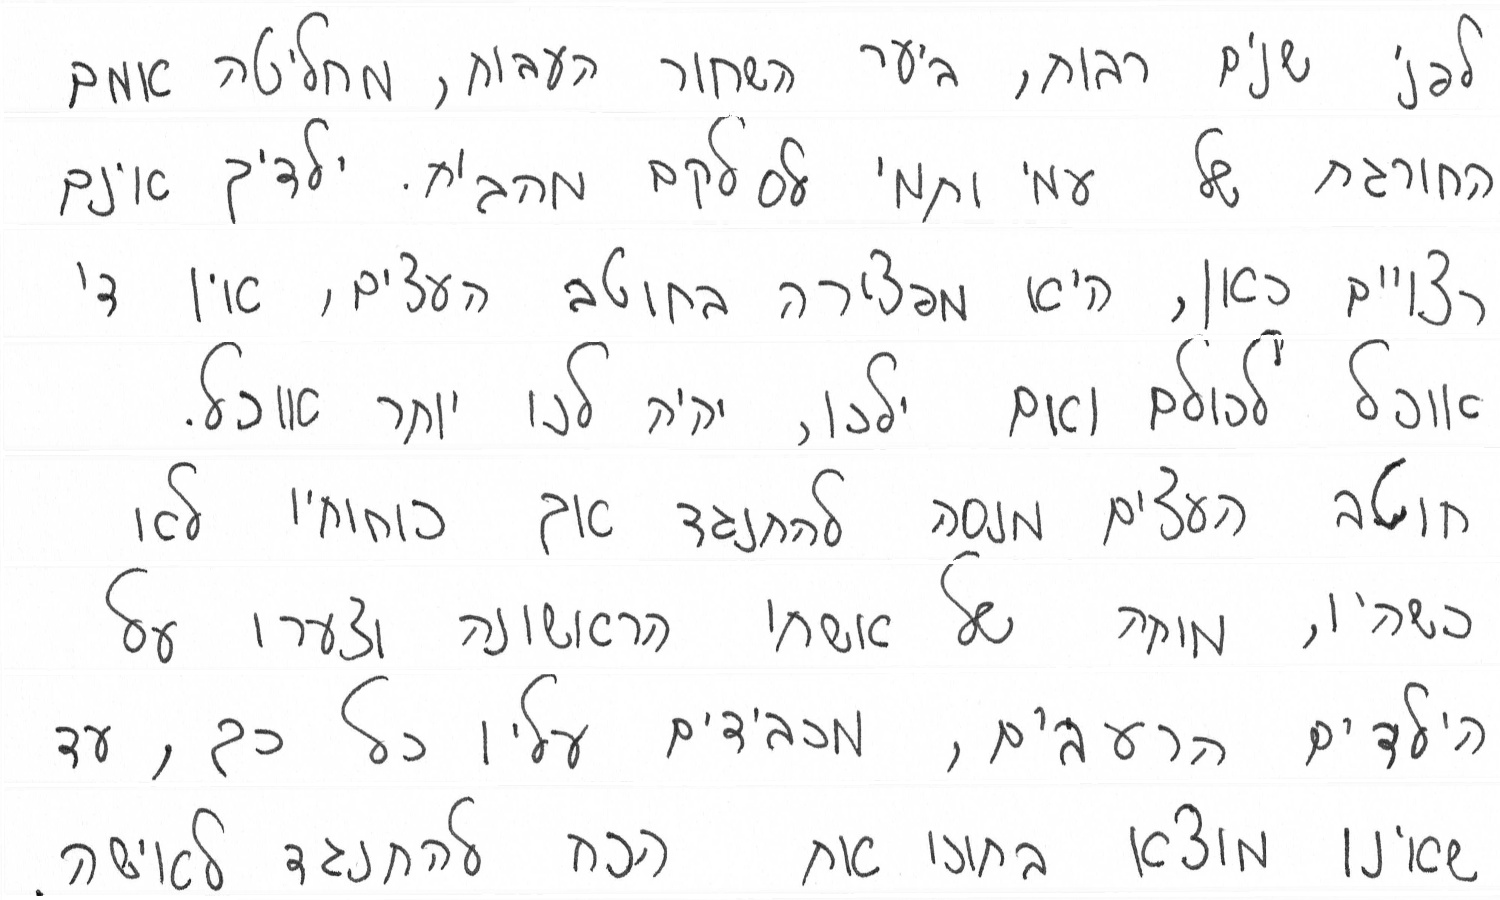 לפני שנים רבות, ביער השחור העבות, מחליטה אמם
החורגת של עמי ותמי לסלקם מהבית. ילדיך אינם
רצויים כאן, היא מפצירה בחוטב העצים, אין די
אוכל לכולם ואם ילכו, יהיה לנו יותר אוכל.
חוטב העצים מנסה להתנגד אך כוחותיו לאו
כשהיו, מותה של אשתו הראשונה וצערו על
הילדים הרעבים, מכבידים עליו כל כך, עד
שאינו מוצא בתוכו את הכח להתנגד לאישה.